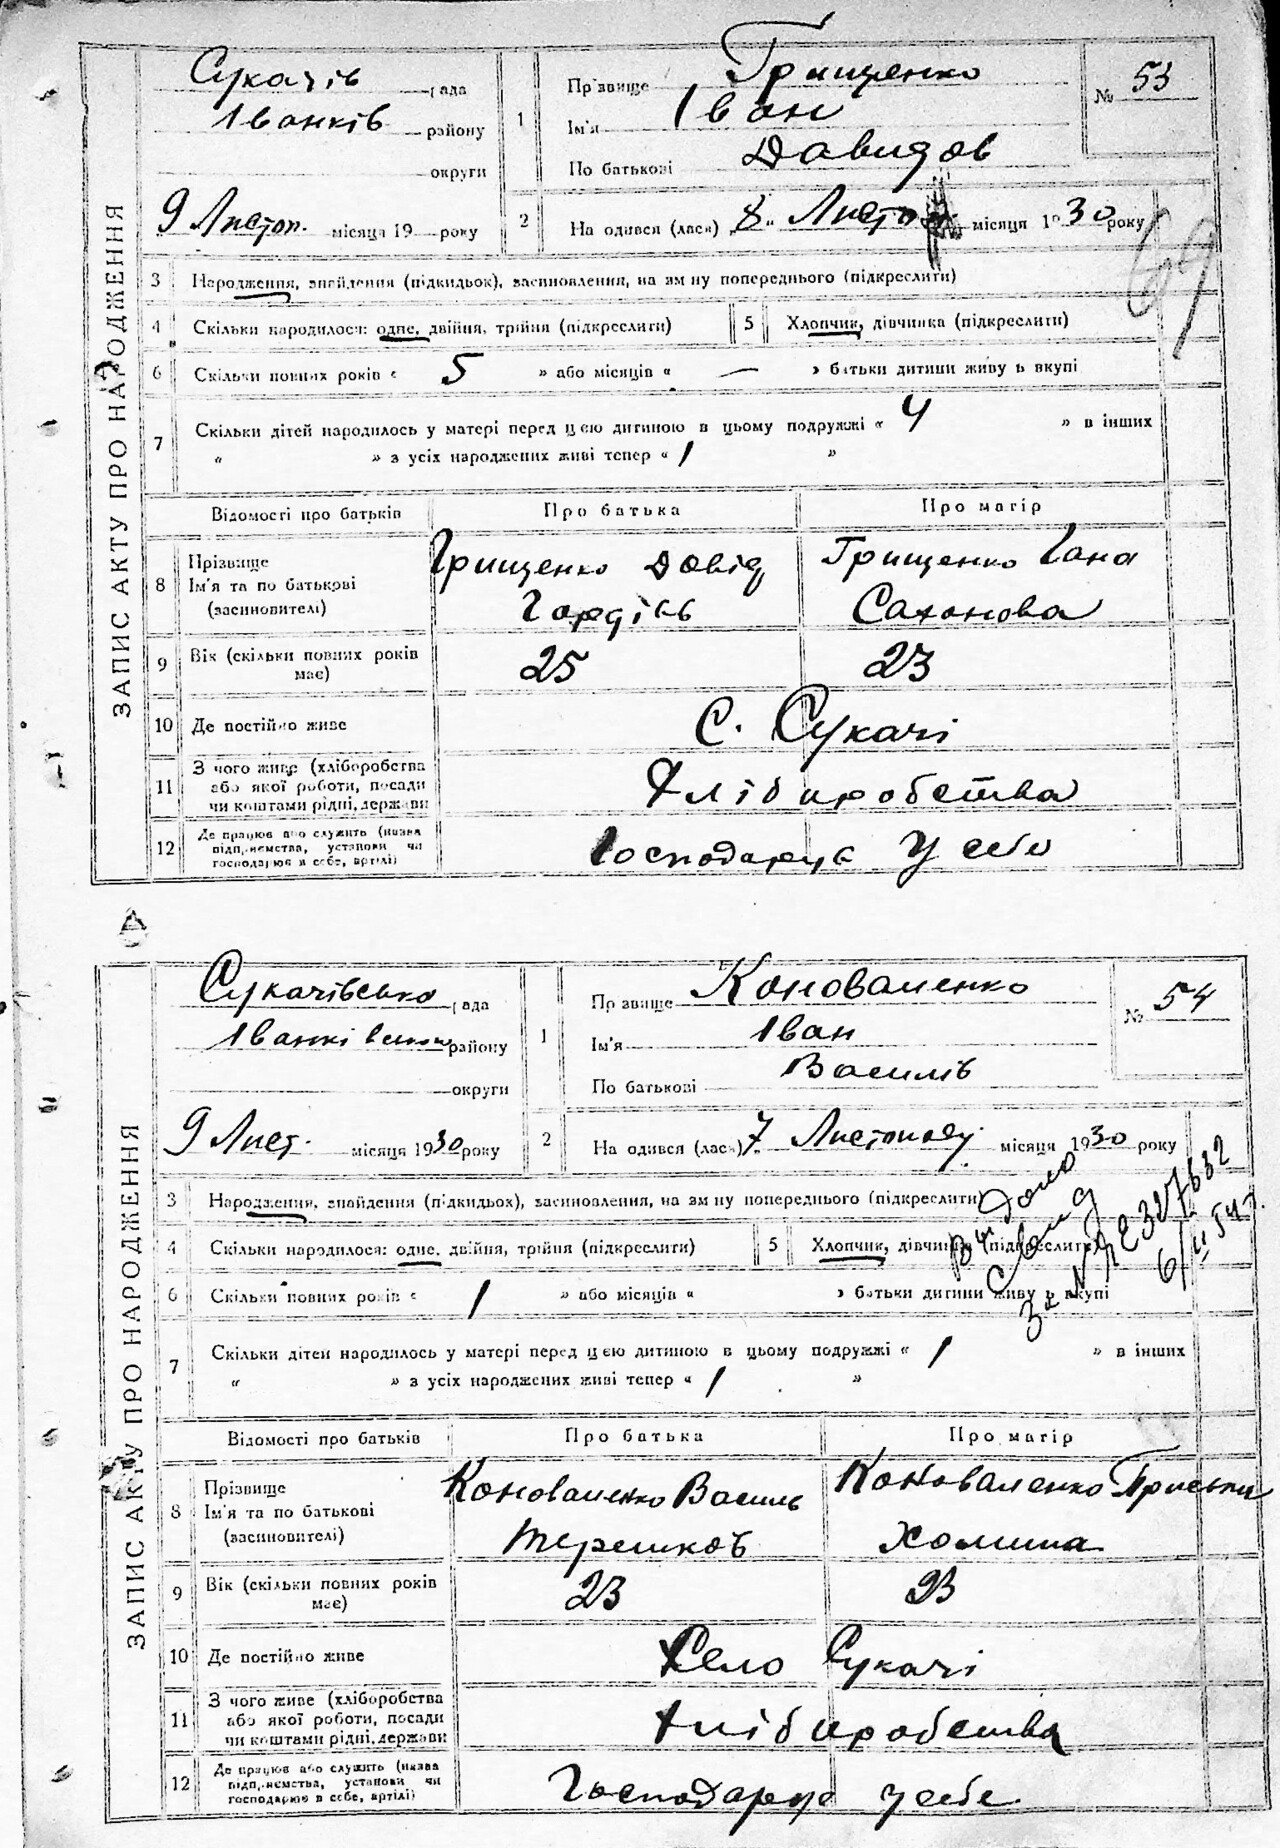 ЗАПИС АКТУ ПРО НАРОДЖЕННЯ
Сукачів рада
Іванків району
округи
9 Листоп. місяця 19 року
1
Прізвище Грищенко
Ім'я Іван
По батькові Давидов
№ 53
2
Народився (лась) „8" Листоп місяця 1930 року
69
3 Народження, знайдення (підкидьок), засиновлення, на зміну попереднього (підкреслити)
4 Скільки народилося: одне, двійня, трійня (підкреслити)
5 Хлопчик, дівчинка (підкреслити)
6 Скільки повних років « 5 » або місяців « — » батьки дитини живуть вкупі
7 Скільки дітей народилось у матері перед цією дитиною в цьому подружжі « 4 » в інших
« » з усіх народжених живі тепер « 1 »
Відомості про батьків Про батька Про матір
8 Прізвище Ім'я та по батькові (засиновителі)
Грищенко Довід Грищенко Гана
Гордієв Сахонова
9 Вік (скільки повних років має) 25 23
10 Де постійно живе С. Сукачі
11 З чого живе (хліборобства або якої роботи, посади чи коштами рідні, держави Хліборобства
12 Де працює або служить (назва підприємства, установи чи господарює в себе, артілі) Господарує у себе
ЗАПИС АКТУ ПРО НАРОДЖЕННЯ
Сукачівсько рада
Іванківсько району
округи
9 Лист. місяця 1930 року
1
Прізвище Коноваленко
Ім'я Іван
По батькові Василів
№ 54
2
Народився (лась) „7 Листопаду місяця 1930 року
3 Народження, знайдення (підкидьок), засиновлення, на зміну попереднього (підкреслити)
4 Скільки народилося: одне, двійня, трійня (підкреслити)
5 Хлопчик, дівчинка (підкреслити)
6 Скільки повних років « 1 » або місяців « » батьки дитини живуть вкупі
7 Скільки дітей народилось у матері перед цією дитиною в цьому подружжі « 1 » в інших
« » з усіх народжених живі тепер « 1 »
Відомості про батьків Про батька Про матір
8 Прізвище Ім'я та по батькові (засиновителі)
Коноваленко Василь Коноваленко Приська
Терешков Хомина
9 Вік (скільки повних років має) 23 23
10 Де постійно живе Село Сукачі
11 З чого живе (хліборобства або якої роботи, посади чи коштами рідні, держави Хліборобства
12 Де працює або служить (назва підприємства, установи чи господарює в себе, артілі) Господарує у себе